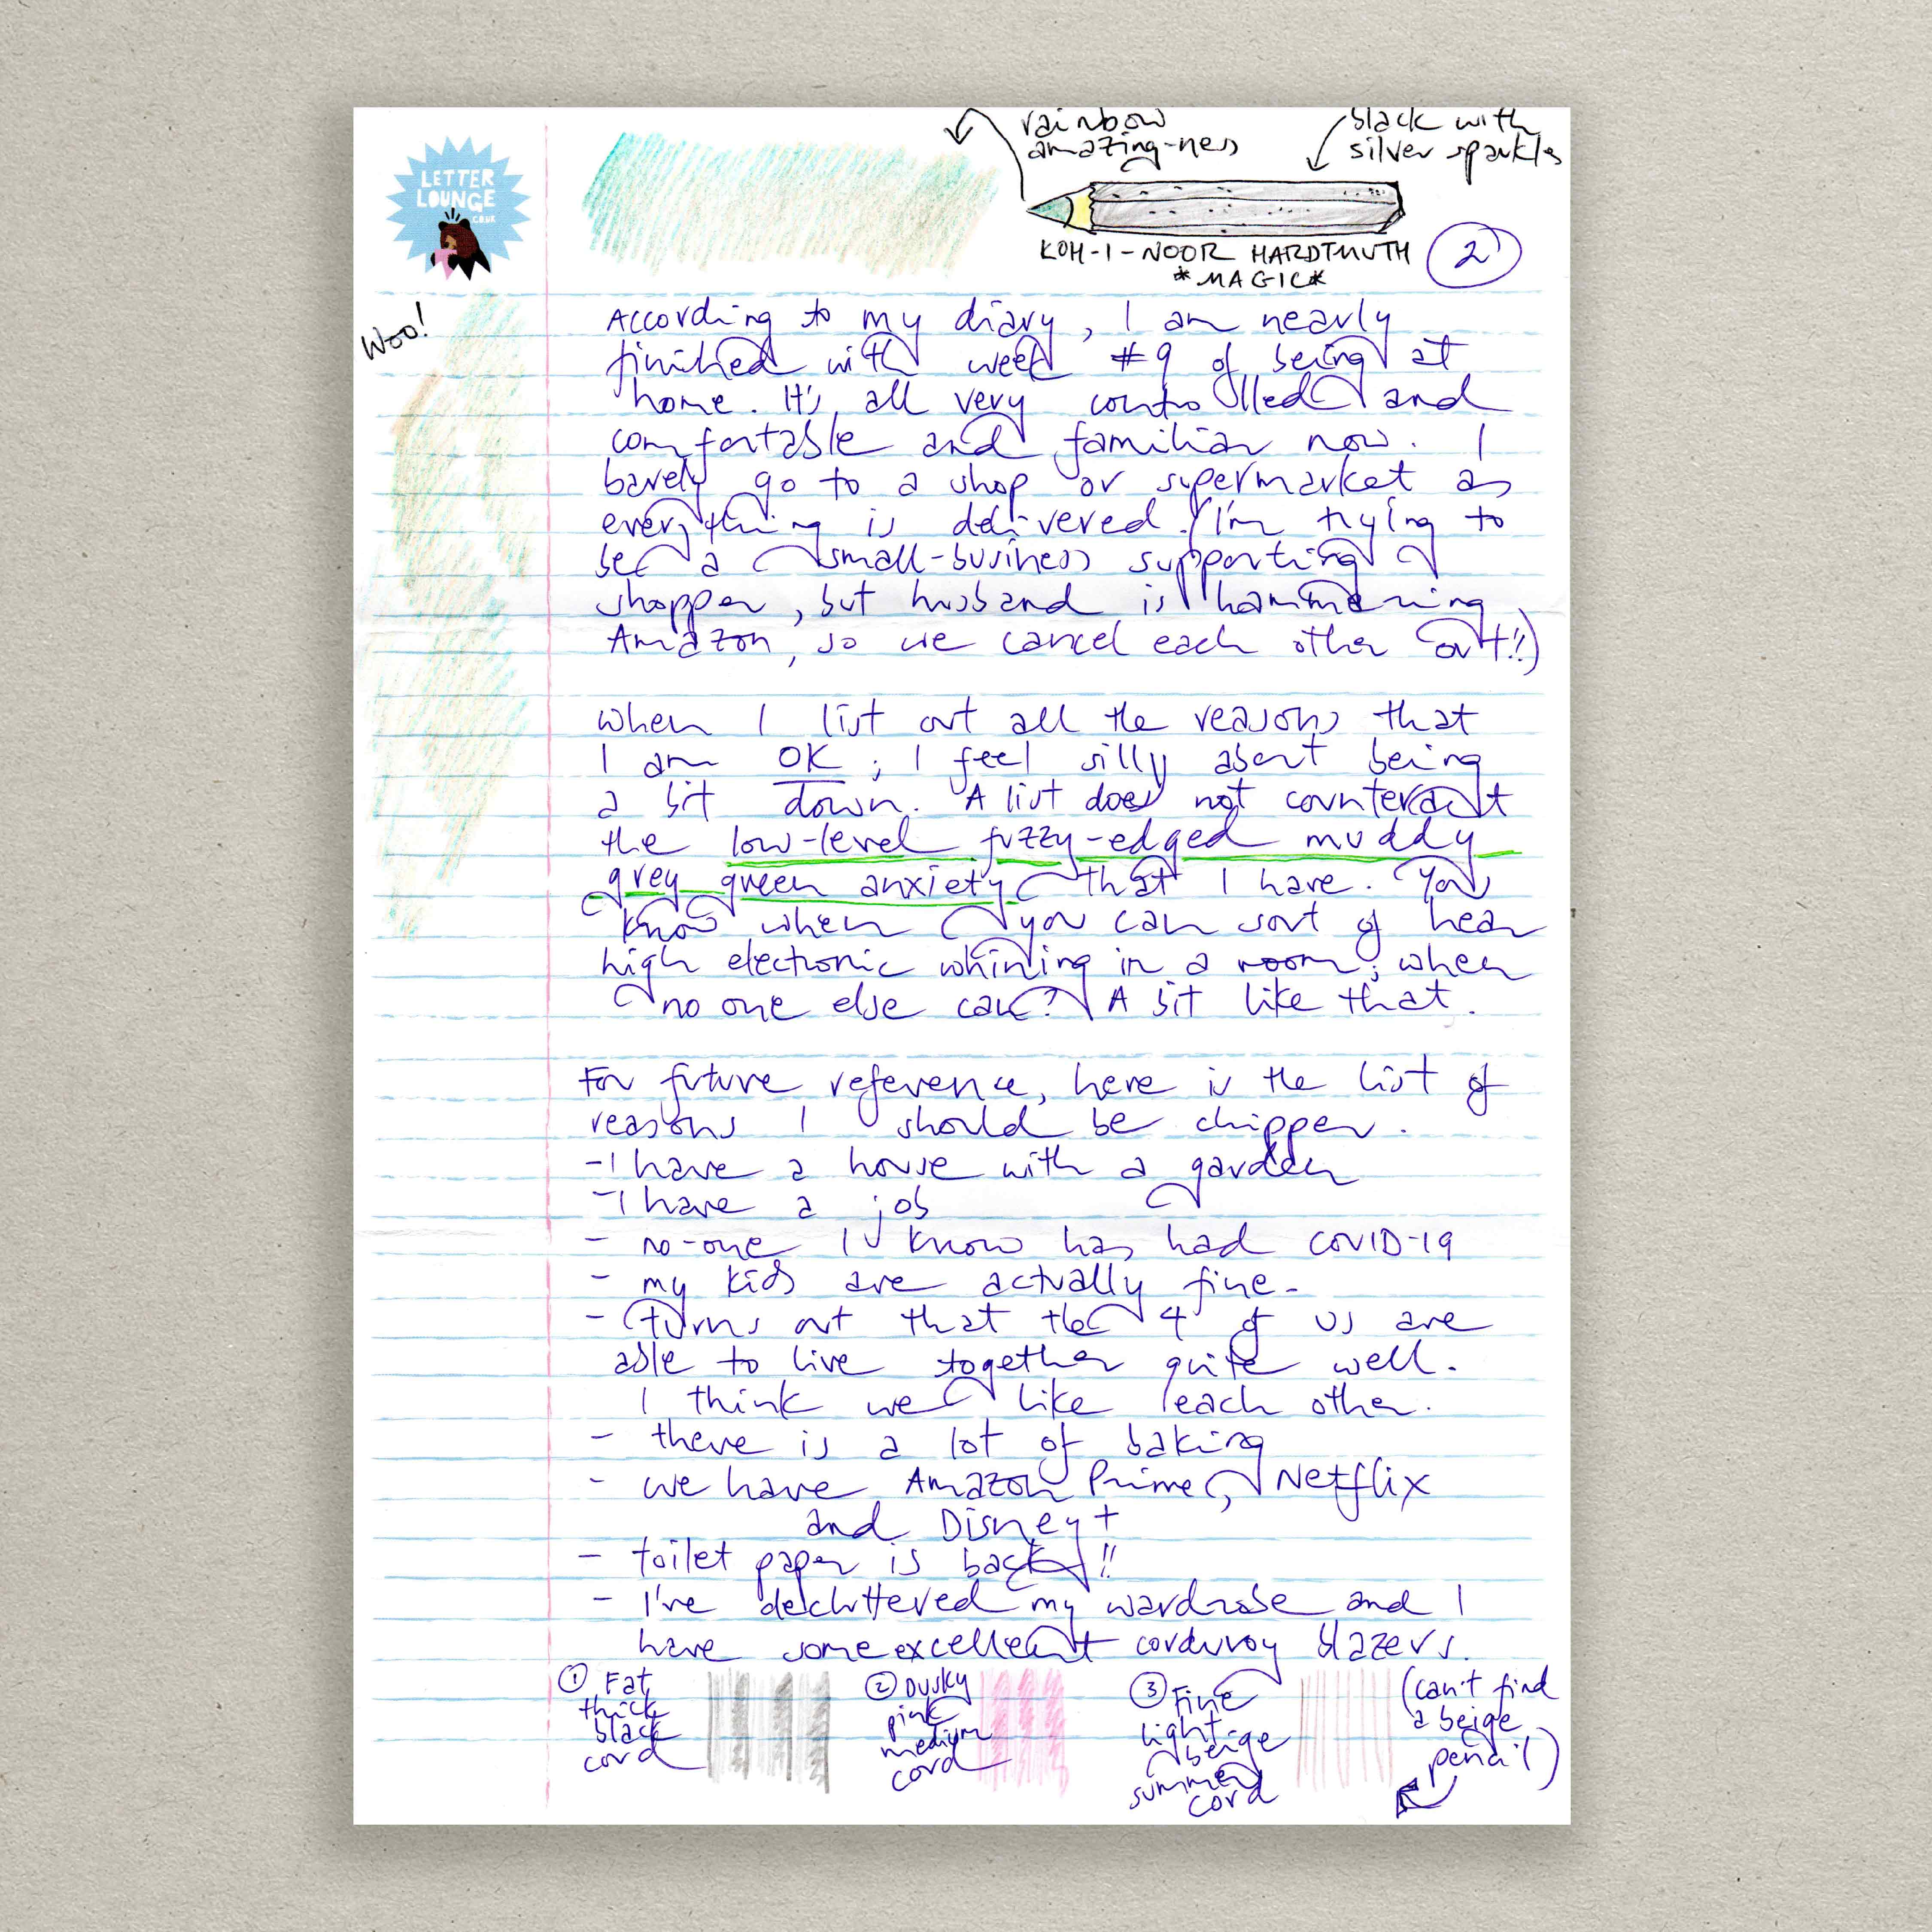 LETTER
LOUNGE
.CO.UK
rainbow
amazing-ness
black with
silver sparkles
KOH-I-NOOR HARDTMUTH
*MAGIC*
2
Woo!
According to my diary, I am nearly
finished with week #9 of being at
home. It's all very controlled and
comfortable and familiar now. I
barely go to a shop or supermarket as
everything is delivered. (I'm trying to
be a small-business supporting
shopper, but husband is hammering
Amazon, so we cancel each other out!!)
When I list out all the reasons that
I am OK, I feel silly about being
a bit down. A list does not counteract
the low-level fuzzy-edged muddy
grey green anxiety that I have. You
know when you can sort of hear
high electronic whining in a room, when
no one else can? A bit like that.
For future reference, here is the list of
reasons I should be chipper.
- I have a house with a garden
- I have a job
- no-one I know has had COVID-19
- my kids are actually fine.
- turns out that the 4 of us are
able to live together quite well.
I think we like each other.
- there is a lot of baking
- we have Amazon Prime, Netflix
and Disney+
- toilet paper is back!!
- I've decluttered my wardrobe and I
have some excellent corduroy blazers.
① Fat
thick
black
cord
② Dusky
pink
medium
cord
③ Fine
light
beige
summer
cord
(can't find
a beige
pencil)